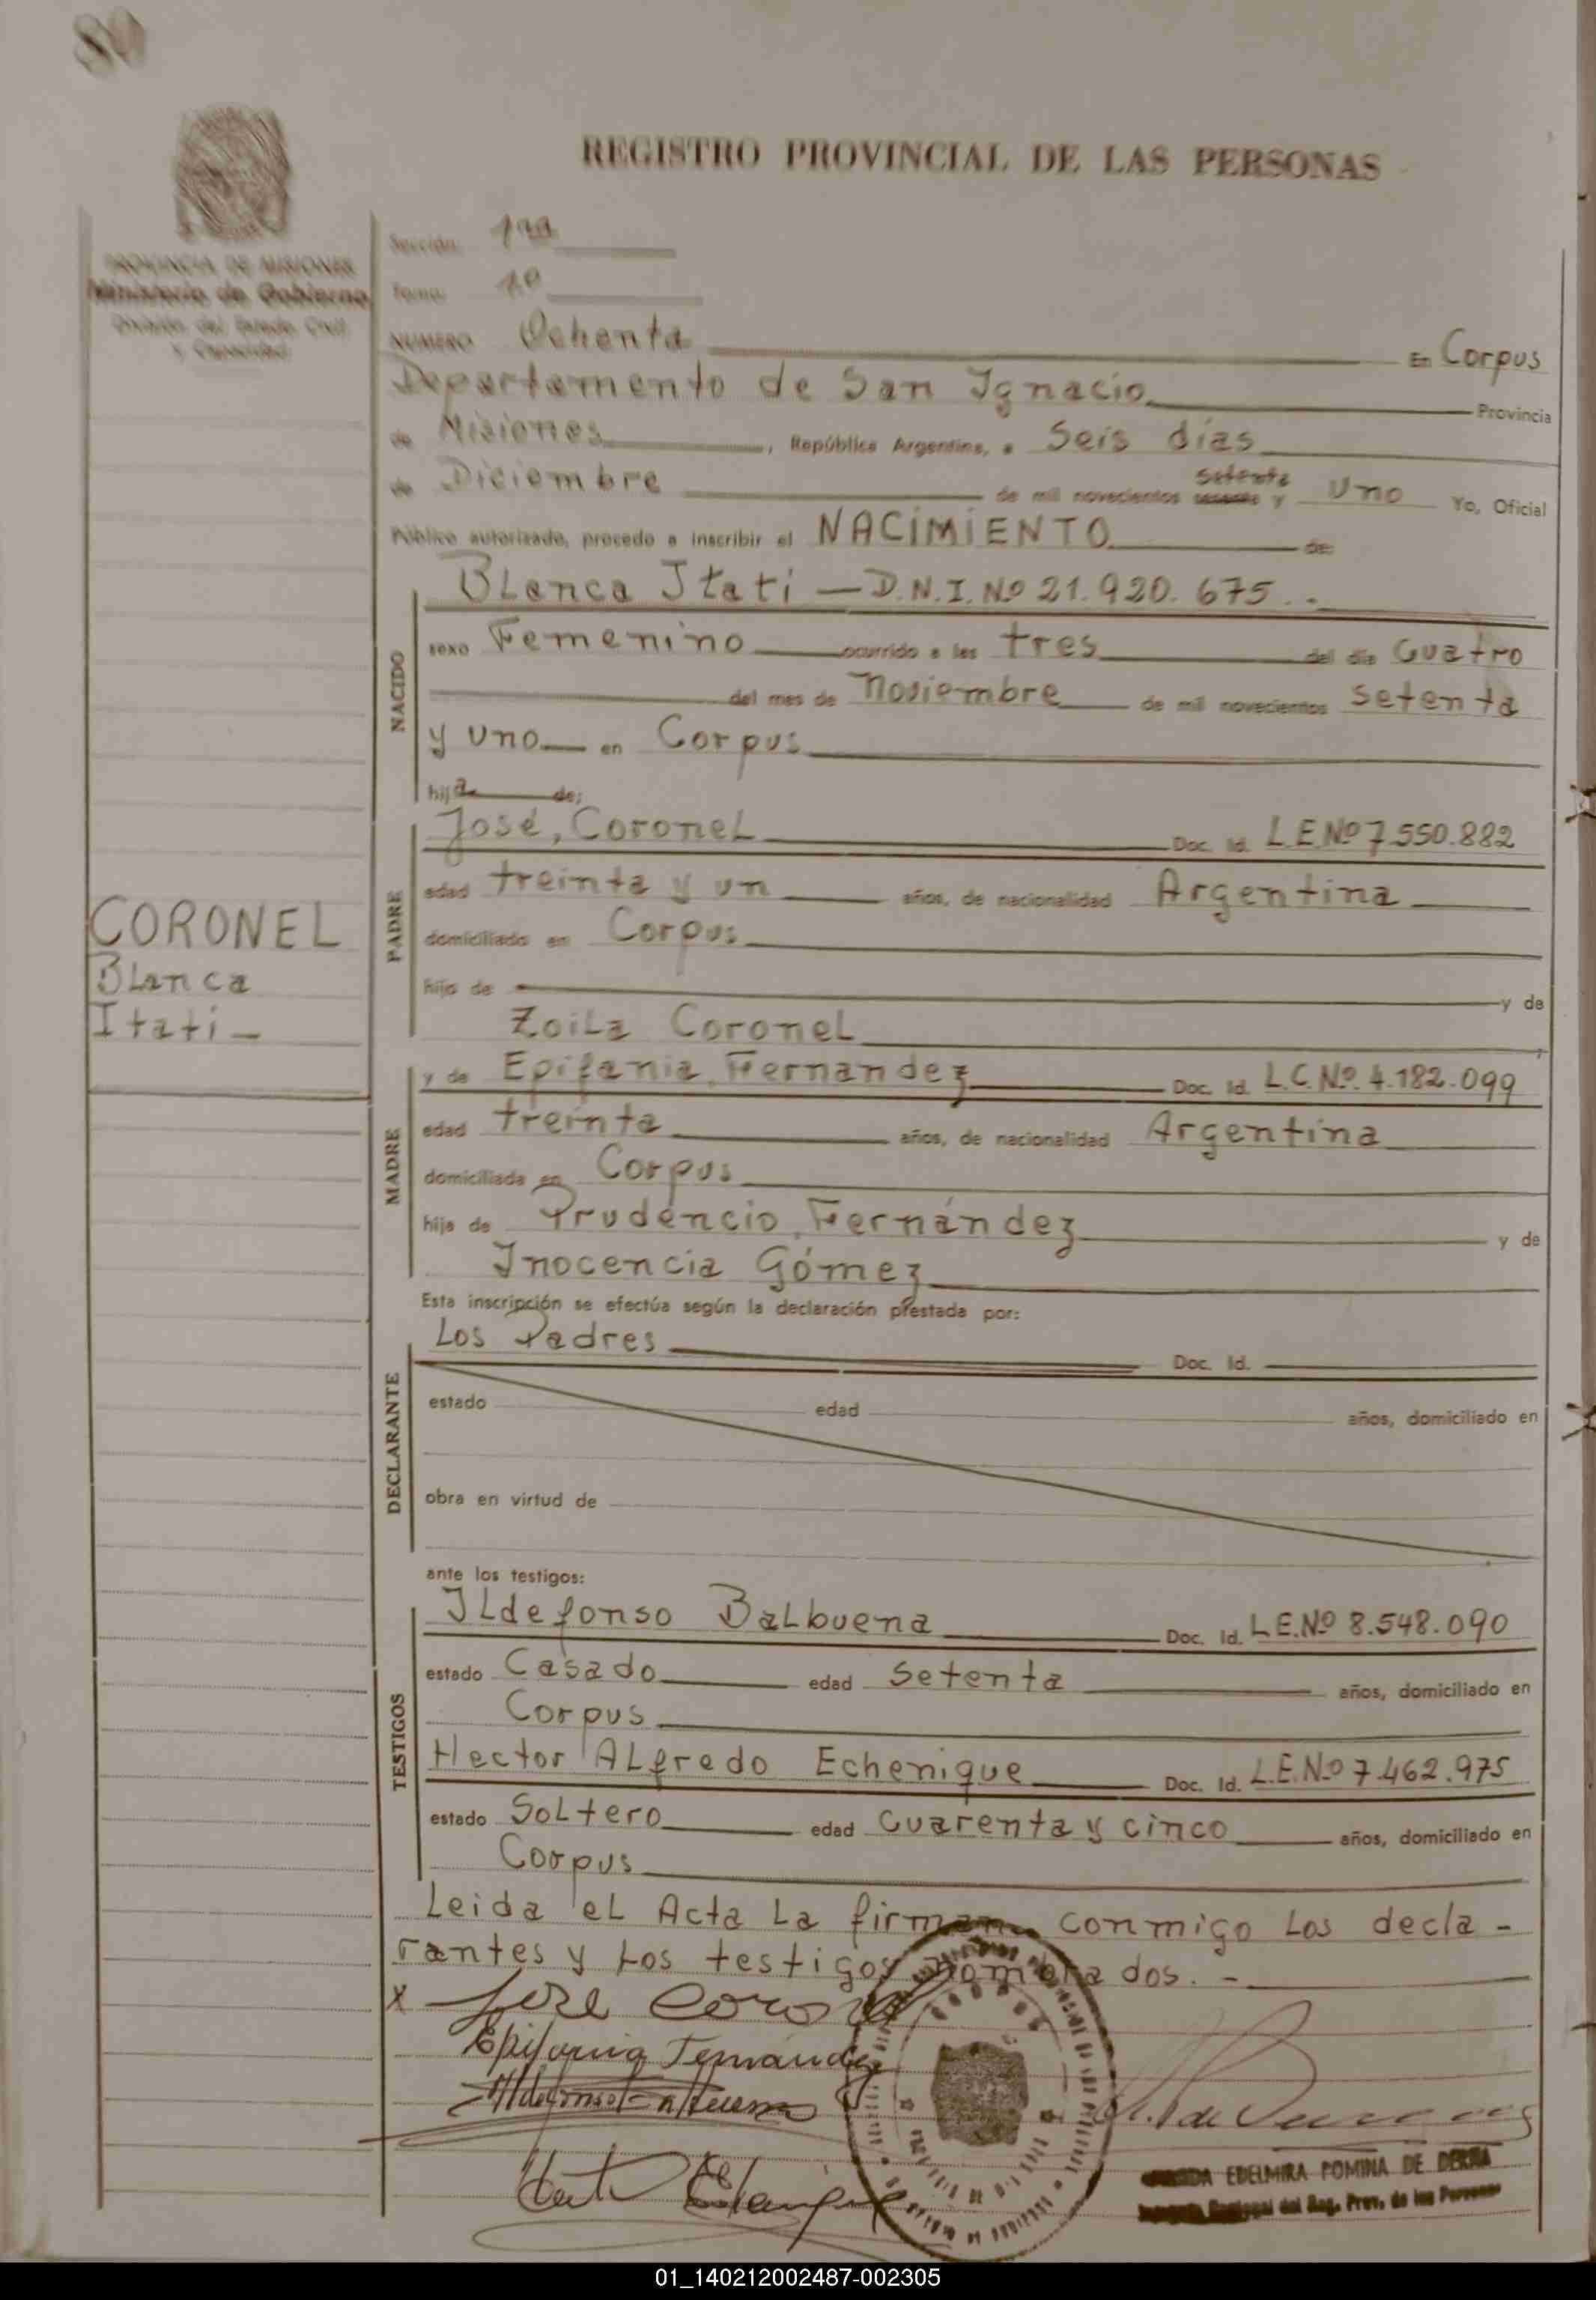 80
REGISTRO PROVINCIAL DE LAS PERSONAS
PROVINCIA DE MISIONES
Ministerio de Gobierno
División del Estado Civil
y Capacidad
Sección 1ra
Tomo 1º
NUMERO Ochenta En Corpus
Departamento de San Ignacio Provincia
de Misiones, República Argentina, a Seis días
setenta
de Diciembre de mil novecientos sesenta y Uno Yo, Oficial
Público autorizado, procedo a inscribir el NACIMIENTO de:
Blanca Itati — D.N.I. Nº 21.920.675..
NACIDO
sexo Femenino ocurrido a las tres del día Cuatro
del mes de Noviembre de mil novecientos setenta
y uno en Corpus
hija de:
PADRE
José, Coronel Doc. Id. L.E.Nº 7.550.882
edad treinta y un años, de nacionalidad Argentina
domiciliado en Corpus
hijo de y de
Zoila Coronel
CORONEL
Blanca
Itati -
MADRE
y de Epifania, Fernandez Doc. Id. L.C.Nº. 4.182.099
edad treinta años, de nacionalidad Argentina
domiciliada en Corpus
hija de Prudencio, Fernández y de
Inocencia Gómez
Esta inscripción se efectúa según la declaración prestada por:
DECLARANTE
Los Padres Doc. Id.
estado edad años, domiciliado en
obra en virtud de
ante los testigos:
TESTIGOS
Ildefonso Balbuena Doc. Id. L.E.Nº 8.548.090
estado Casado edad Setenta años, domiciliado en
Corpus
Hector Alfredo Echenique Doc. Id. L.E.Nº 7.462.975
estado Soltero edad Cuarenta y cinco años, domiciliado en
Corpus
Leida el Acta la firman conmigo los decla-
rantes y los testigos nombrados.-
x José Coronel
Epifania Fernández
EDELMIRA POMINA DE
del Reg. Prov. de las Personas
01_140212002487-002305